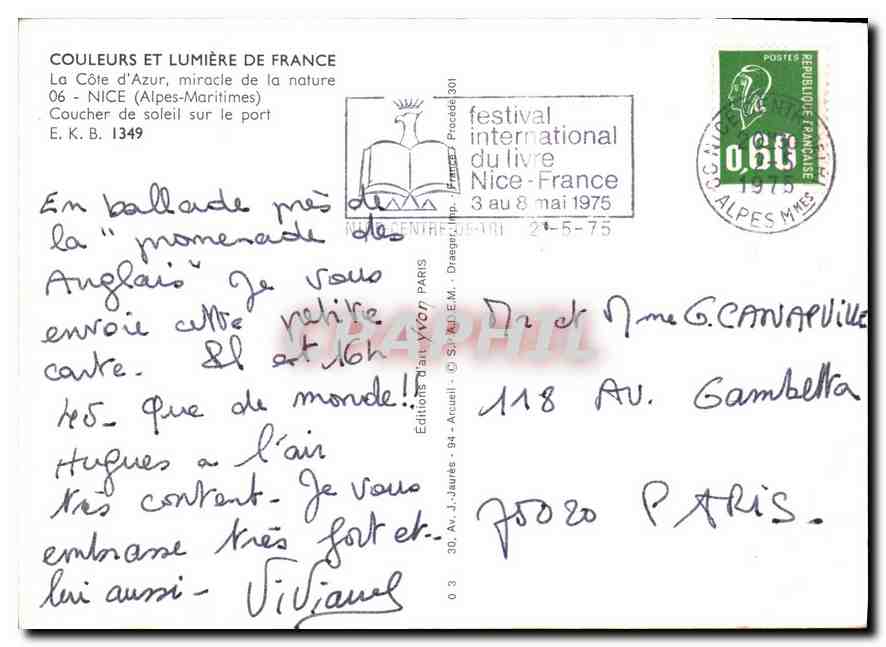 COULEURS ET LUMIÈRE DE FRANCE
La Côte d'Azur, miracle de la nature
06 - NICE (Alpes-Maritimes)
Coucher de soleil sur le port
E. K. B. 1349
En ballade près de
la "promenade des
Anglais" Je vous
envoie cette petite
carte. Il est 16h
45- Que de monde!!
Hugues a l'air
très content- Je vous
embrasse très fort et-
lui aussi-
festival
international
du livre
Nice-France
3 au 8 mai 1975
NICE CENTRE DE TRI 2 -5-75
POSTES
REPUBLIQUE FRANÇAISE
0,60
1975
ALPES Mmes
Editions d'art yvon PARIS
0 3 30, Av. J.-Jaurès - 94 - Arcueil - © S.P.A.D.E.M. - Draeger Imp. - France - Procédé 301
CPAPHIL
Mr et Mme G. CANAPVILLE
118 AV. Gambetta
75020 PARIS.